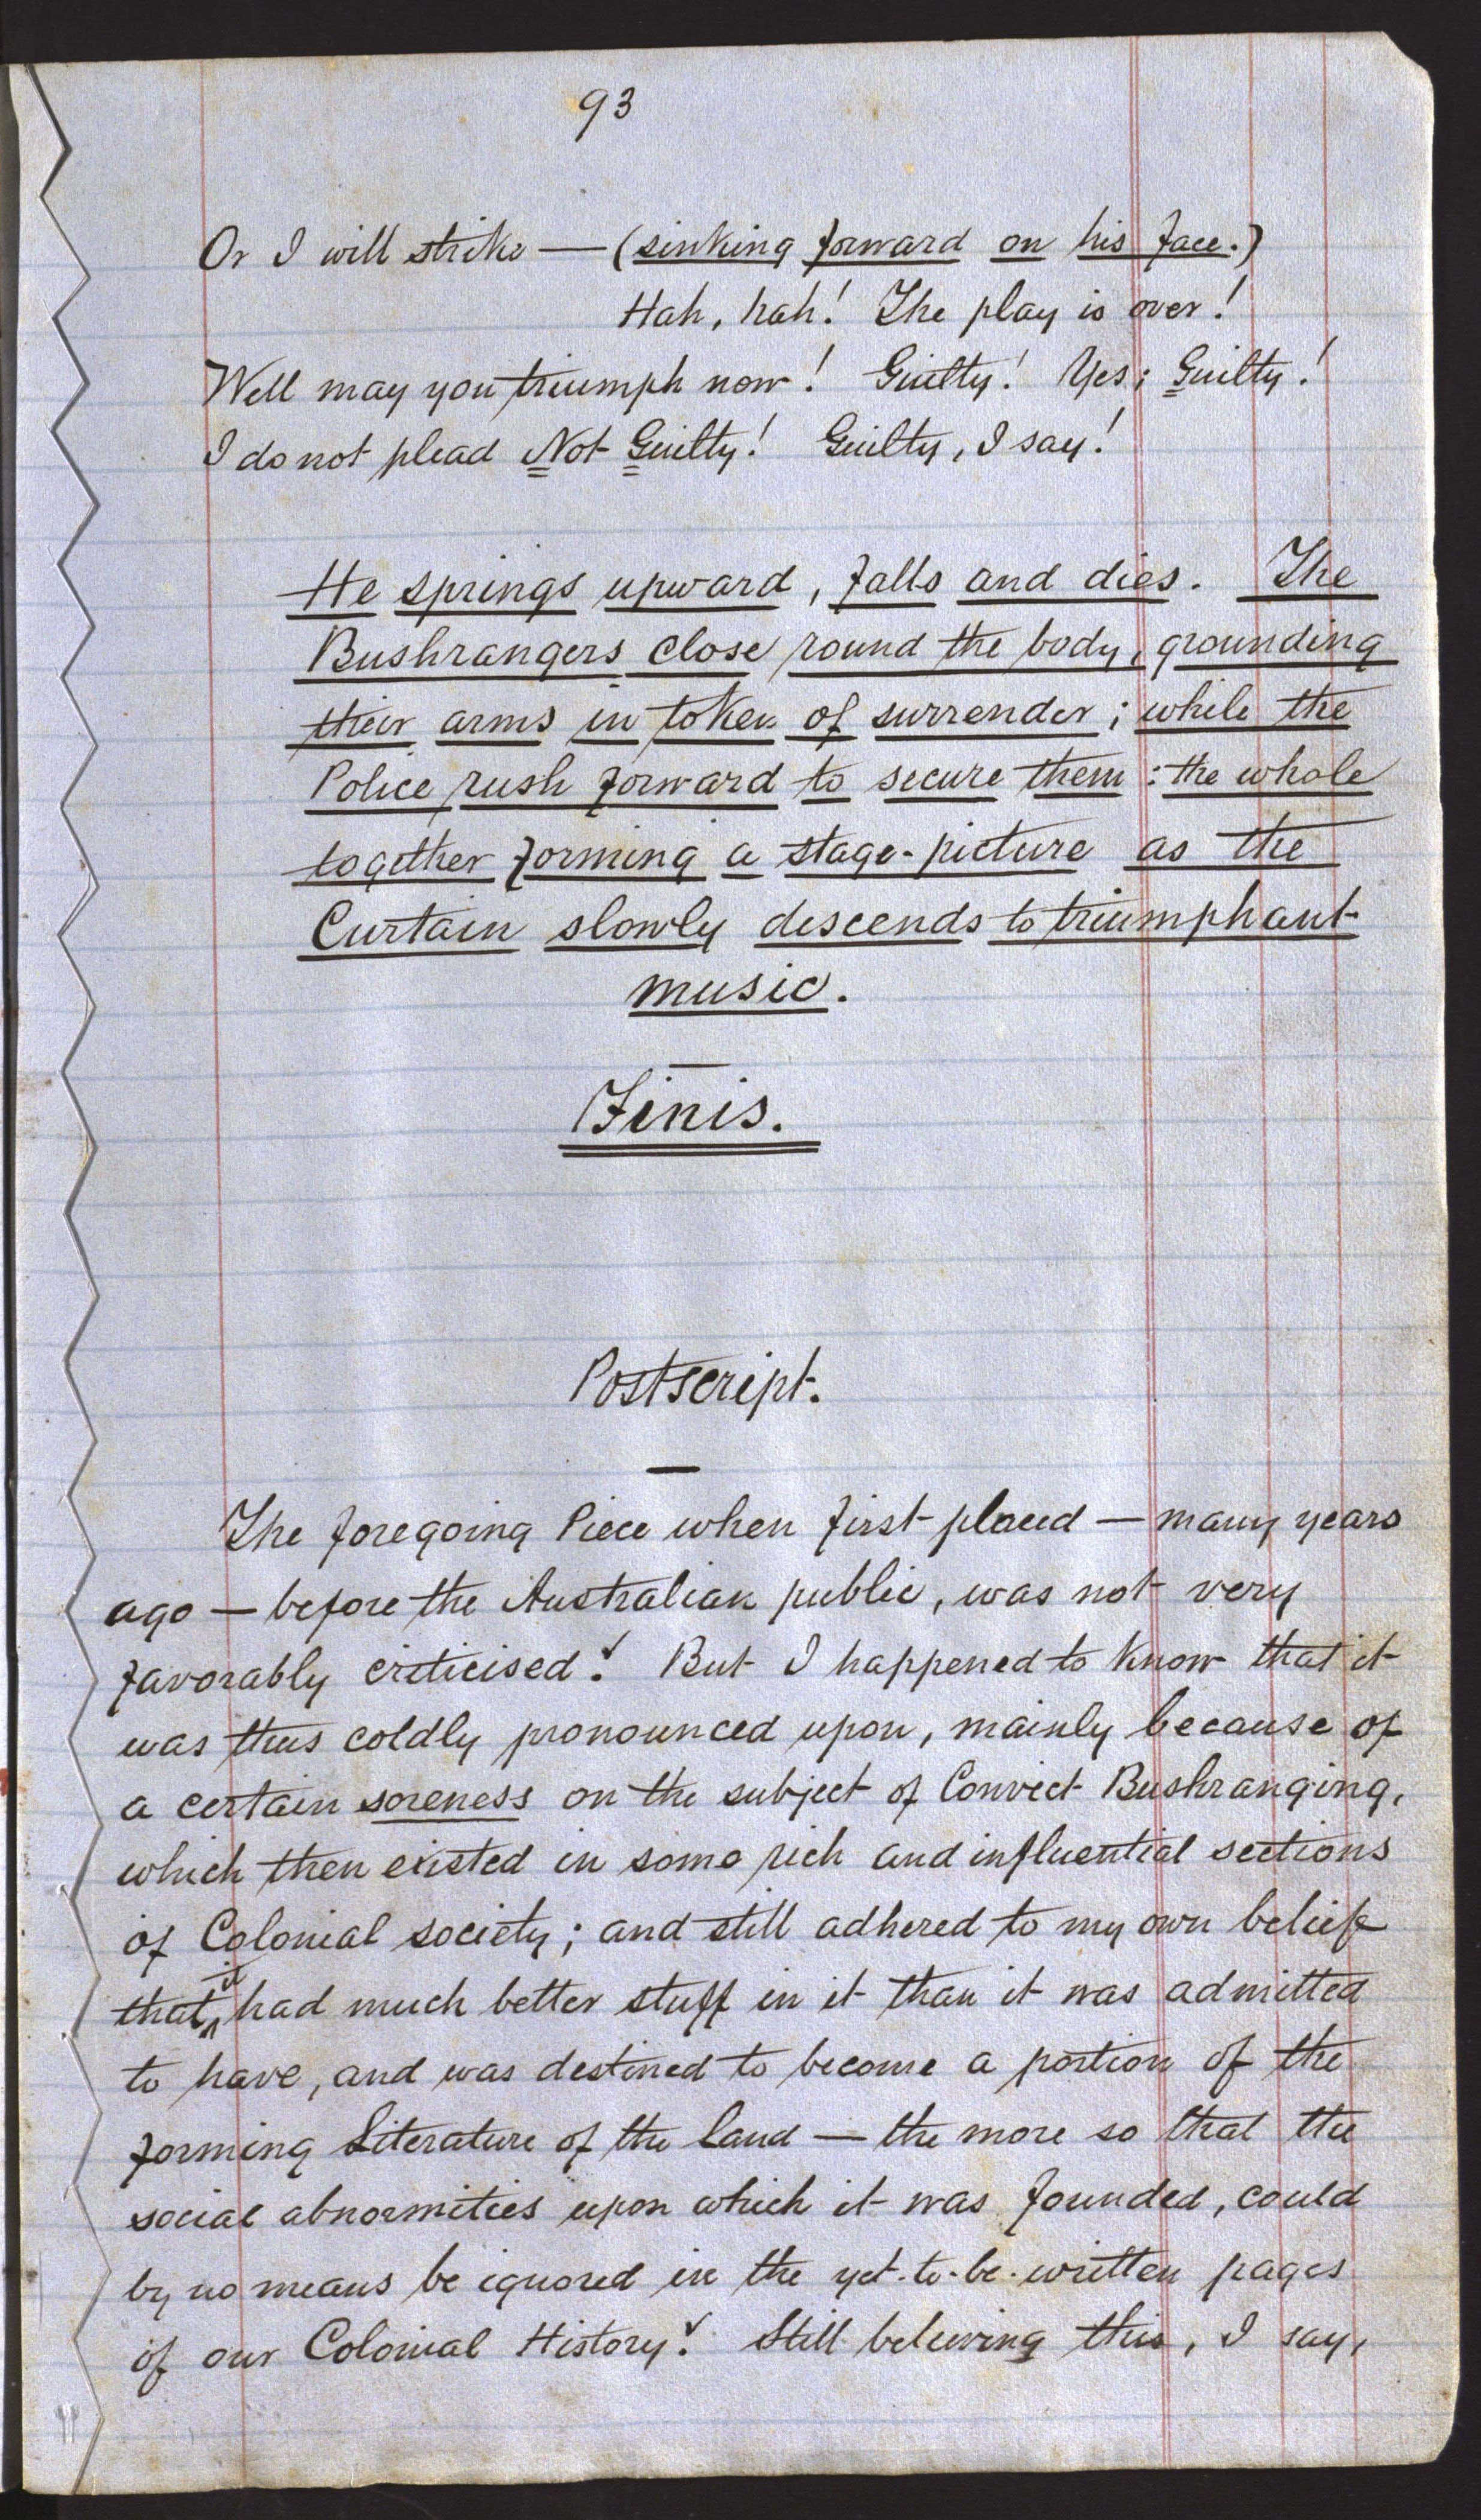 93
Or I will strike — (sinking forward on his face.)
Hah, hah! The play is over!
Well may you triumph now! Guilty! Yes; Guilty!
I do not plead Not Guilty! Guilty, I say!
He springs upward, falls and dies. The
Bushrangers close round the body, grounding
their arms in token of surrender; while the
Police rush forward to secure them: the whole
together forming a stage-picture as the
Curtain slowly descends to triumphant
music.
Finis.
Postscript.
The foregoing Piece when first placed — many years
ago — before the Australian public, was not very
favorably criticised. But I happened to know that it
was thus coldly pronounced upon, mainly because of
a certain soreness on the subject of Convict Bushranging,
which then existed in some rich and influential sections
of Colonial society; and still adhered to my own belief
that it had much better stuff in it than it was admitted
to have, and was destined to become a portion of the
forming Literature of the Land — the more so that the
social abnormities upon which it was founded, could
by no means be ignored in the yet-to-be-written pages
of our Colonial History. Still believing this, I say,